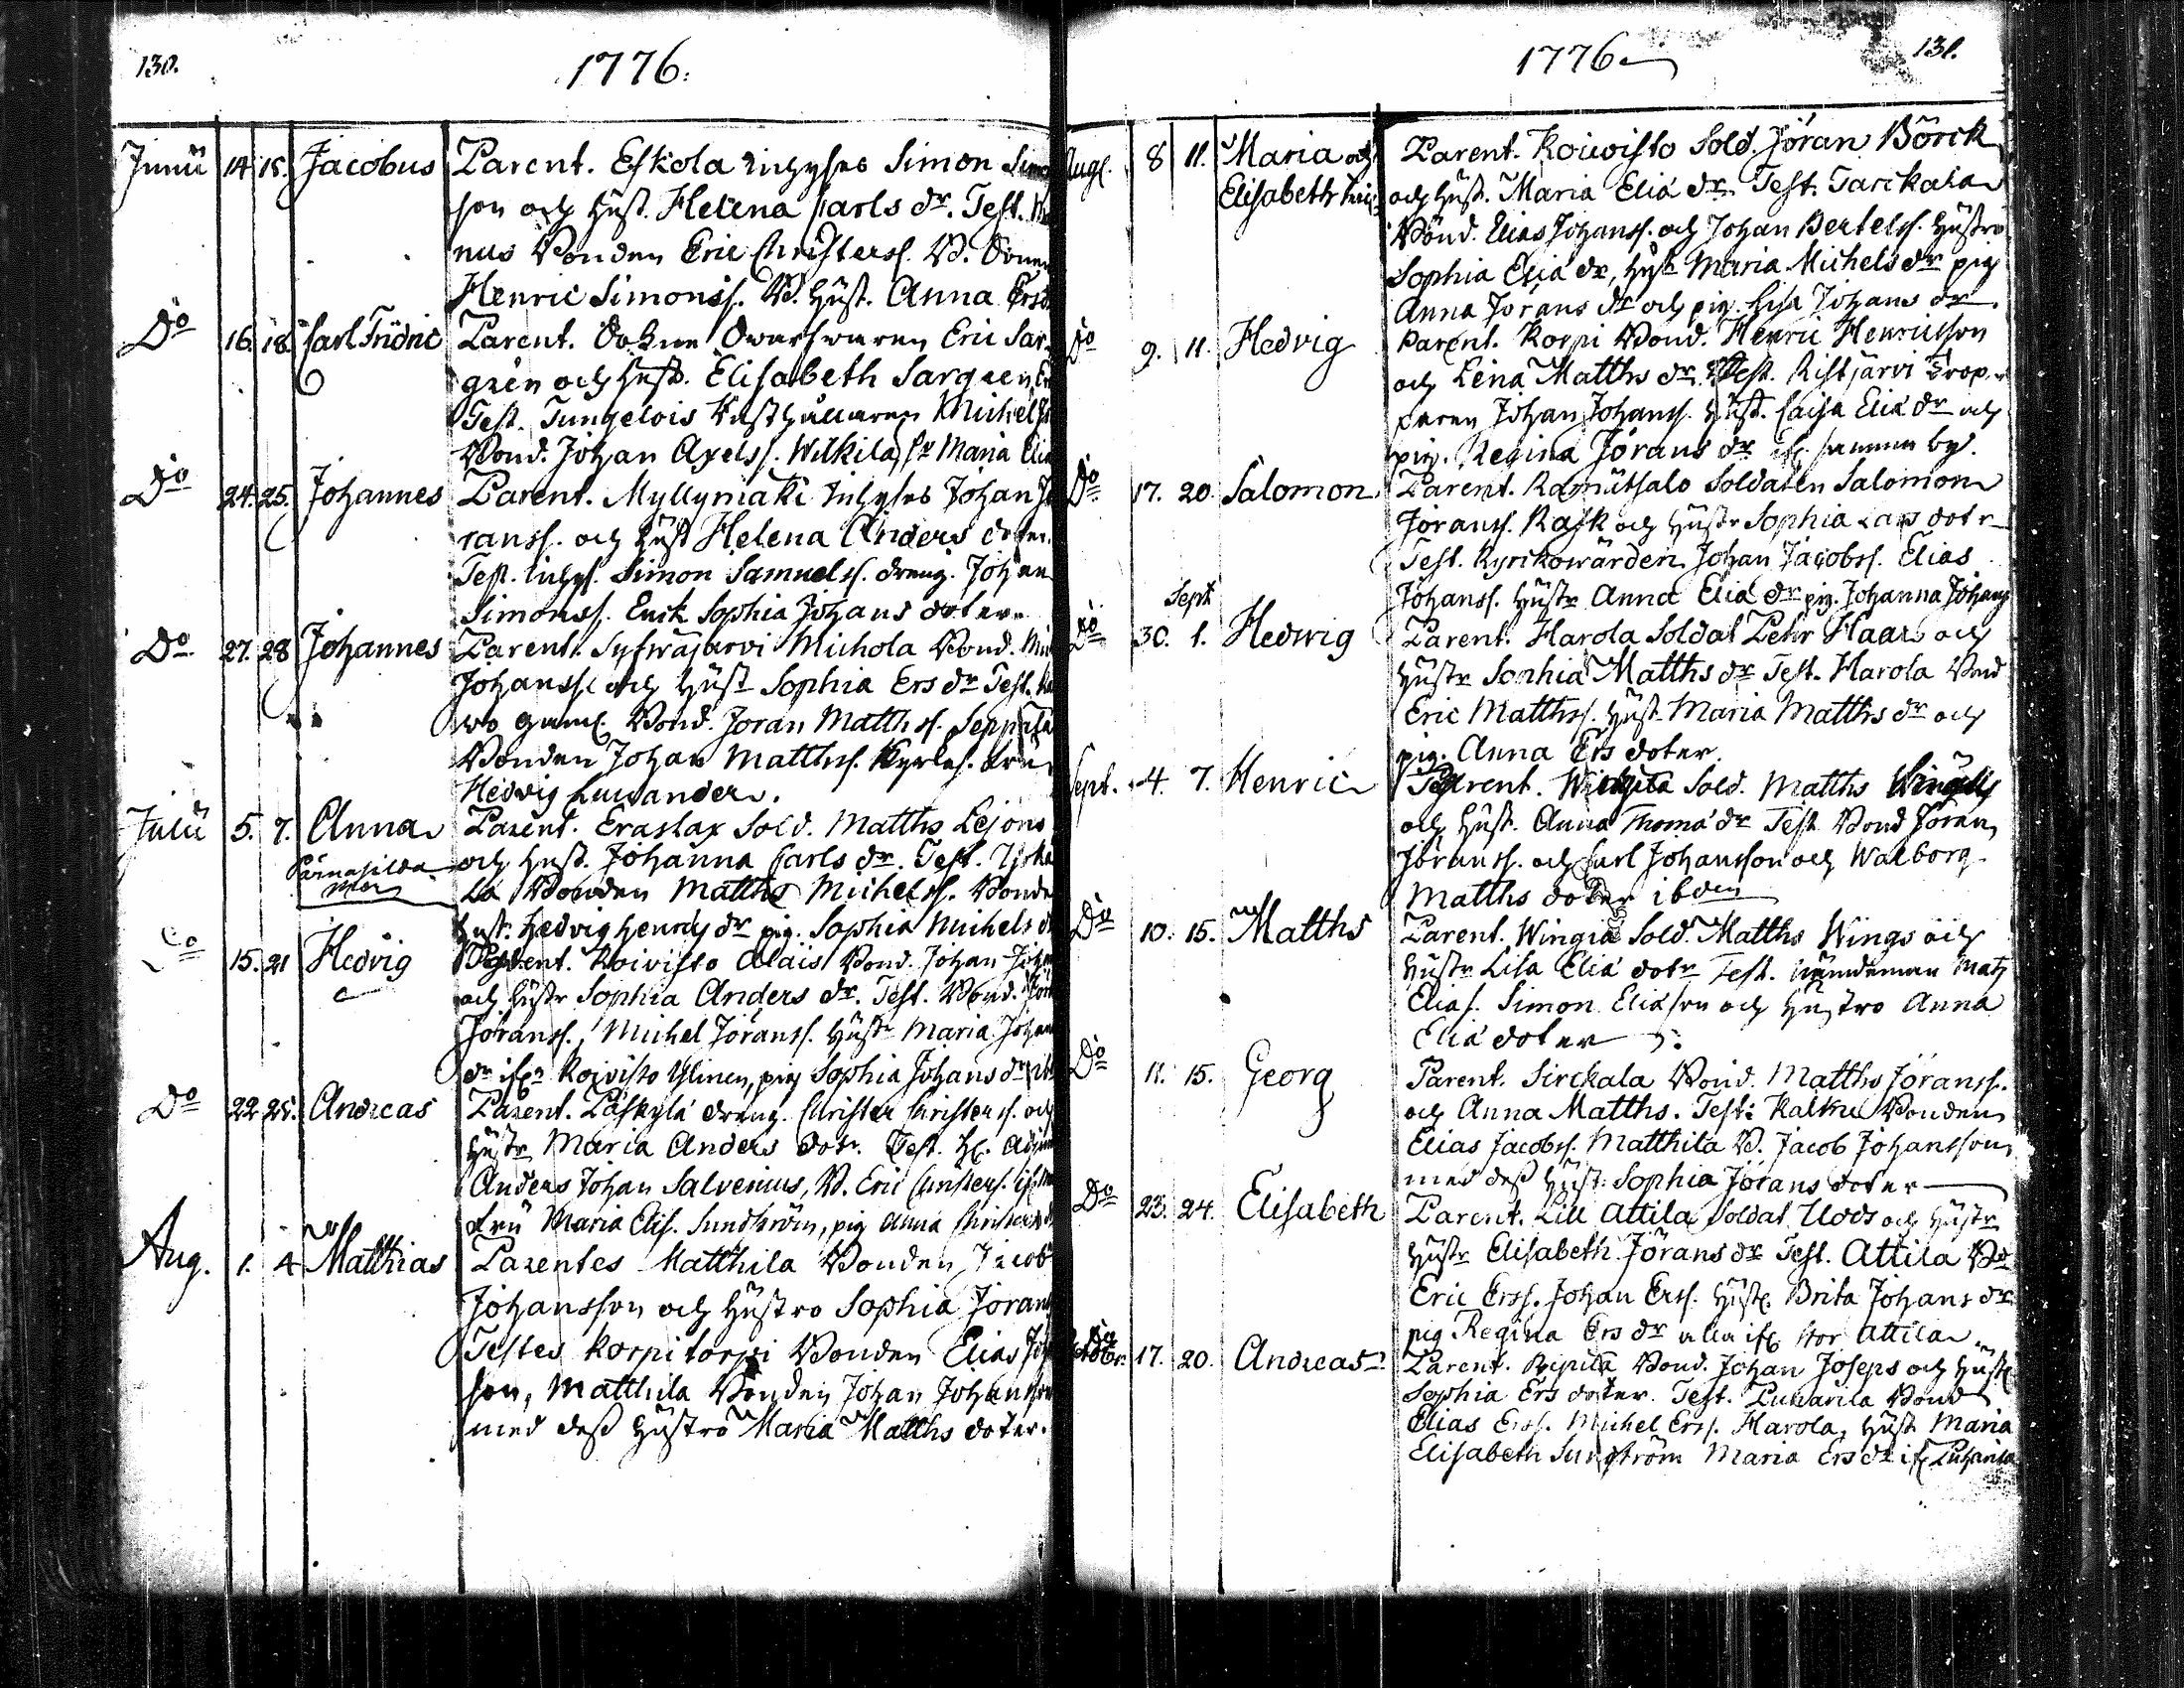 130.
1776.
Junii 14 15. Jacobus Parent. Eskola Inhyses Simon Simo
son och hust. Helena Carls dr. Test.
nus Bonden Eric Christerss. B.
Henric Simonss. B. hust. Anna Ers
Do 16. 18. Carl Fridric Parent. Eric Sar
gren och hust. Elisabeth Sargren
Test. Tungelois Michel
Bond. Johan Axelss. Wilkila, Maria Elia
Do 24. 25. Johannes Parent. Myllymäki Inhyses Johan Jö
ranss. och hust Helena Anders doter.
Test. Inhys. Simon Samuelss. dreng. Johan
Simonss. Enck. Sophia Johans doter.
Do 27. 28 Johannes Parent. Syfwäjärvi Michola Bond.
Johanss. och hust Sophia Ers dr Test.
wo gaml. Bond. Jöran Matthss. Seppälä
Bonden Johan Matthss. Kyrkoh. fru
Hedvig Lewander.
Julii 5. 7. Anna Parent. Eraslax Sold. Matths Lejons
och hust. Johanna Carls dr. Test.
la Bonden Matths Michelss. Bonde
hust. Hedvig Henrics dr pig. Sophia Michels d
Do 15. 21 Hedvig Parent. Koivisto Alais Bond. Johan Joha
och hustr Sophia Anders dr. Test. Bond. Jör
Jöranss., Michel Jöranss. hustr Maria Joha
dr ifrn Koivisto Ylinen, pig Sophia Johans dr
Do 22 25. Andreas Parent. Päskylä dreng. Christer Christerss. och
hustr Maria Anders dotr. Test. H.
Anders Johan Salvenius, B. Eric Christers.
fru Maria Elis. Sundström, pig Anna Christers
Aug. 1. 4 Matthias Parentes Matthila Bonden Jacob
Johansson och hustro Sophia Jörans
Testes Korpitorpi Bonden Elias Jo
son, Matthila Bonden Johan Johansson
med dess hustro Maria Matths doter.
131.
1776
Aug. 8 11. Maria och Parent. Koiwisto Sold. Jöran Börck
Elisabeth och hust. Maria Eliä dr. Test. Tarckala
Bond. Elias Johanss. och Johan Bertelss. hustro
Sophia Eliä dr, hust Maria Michels dr pig
Anna Jörans dr och pig. Lisa Johans dr.
Do 9. 11. Hedvig Parent. Korpi Bond. Henric Henricsson
och Lena Matths dr. Test. Ristjärvi Torp
paren Johan Johanss. hust. Caisa Eliä dr och
pig. Regina Jörans dr if. samma by.
Do 17. 20. Salomon Parent. Ramutsalo Soldaten Salomon
Jöranss. Rask och hustr Sophia Lars dotr
Test. Kyrckowärden Johan Jacobss. Elias
Johanss. hustr Anna Eliä dr pig. Johanna Johans
Sept
Do 30. 1. Hedwig Parent. Harola Soldat Pehr Haar och
hustr Sophia Matths dr Test. Harola Bond
Eric Matthss. hust. Maria Matths dr och
pig. Anna Ers doter.
Sept. 4. 7. Henric Parent. Sold. Matths Wings
och hust. Anna Thomä dr Test Bond Jöran
Jöranss. och Carl Johansson och Walborg
Matths doter ibden
Do 10. 15. Matths Parent. Wingiä Sold. Matths Wings och
hustr Lisa Eliä dotr Test. Nämdeman Mats
Elias. Simon Eliäson och hustro Anna
Eliä doter
Do 11. 15. Georg Parent. Sirckala Bond. Matths Jöranss.
och Anna Matths. Test: Kalkku Bonden
Elias Jacobss. Matthila B. Jacob Johansson
med dess hust. Sophia Jörans doter
Do 23. 24. Elisabeth Parent. Lill Attila Soldat och hustr
hustr Elisabeth Jörans dr Test. Attila Bd
Eric Erss. Johan Erss. hust. Brita Johans dr
pig Regina Ers dr alla if. Stor Attila.
Octobr. 17. 20. Andreas Parent. Bond. Johan Joseps och hust
Sophia Ers doter. Test. Bond
Elias Erss. Michel Erss. Harola, hust Maria
Elisabeth Sundström Maria Ers dr if